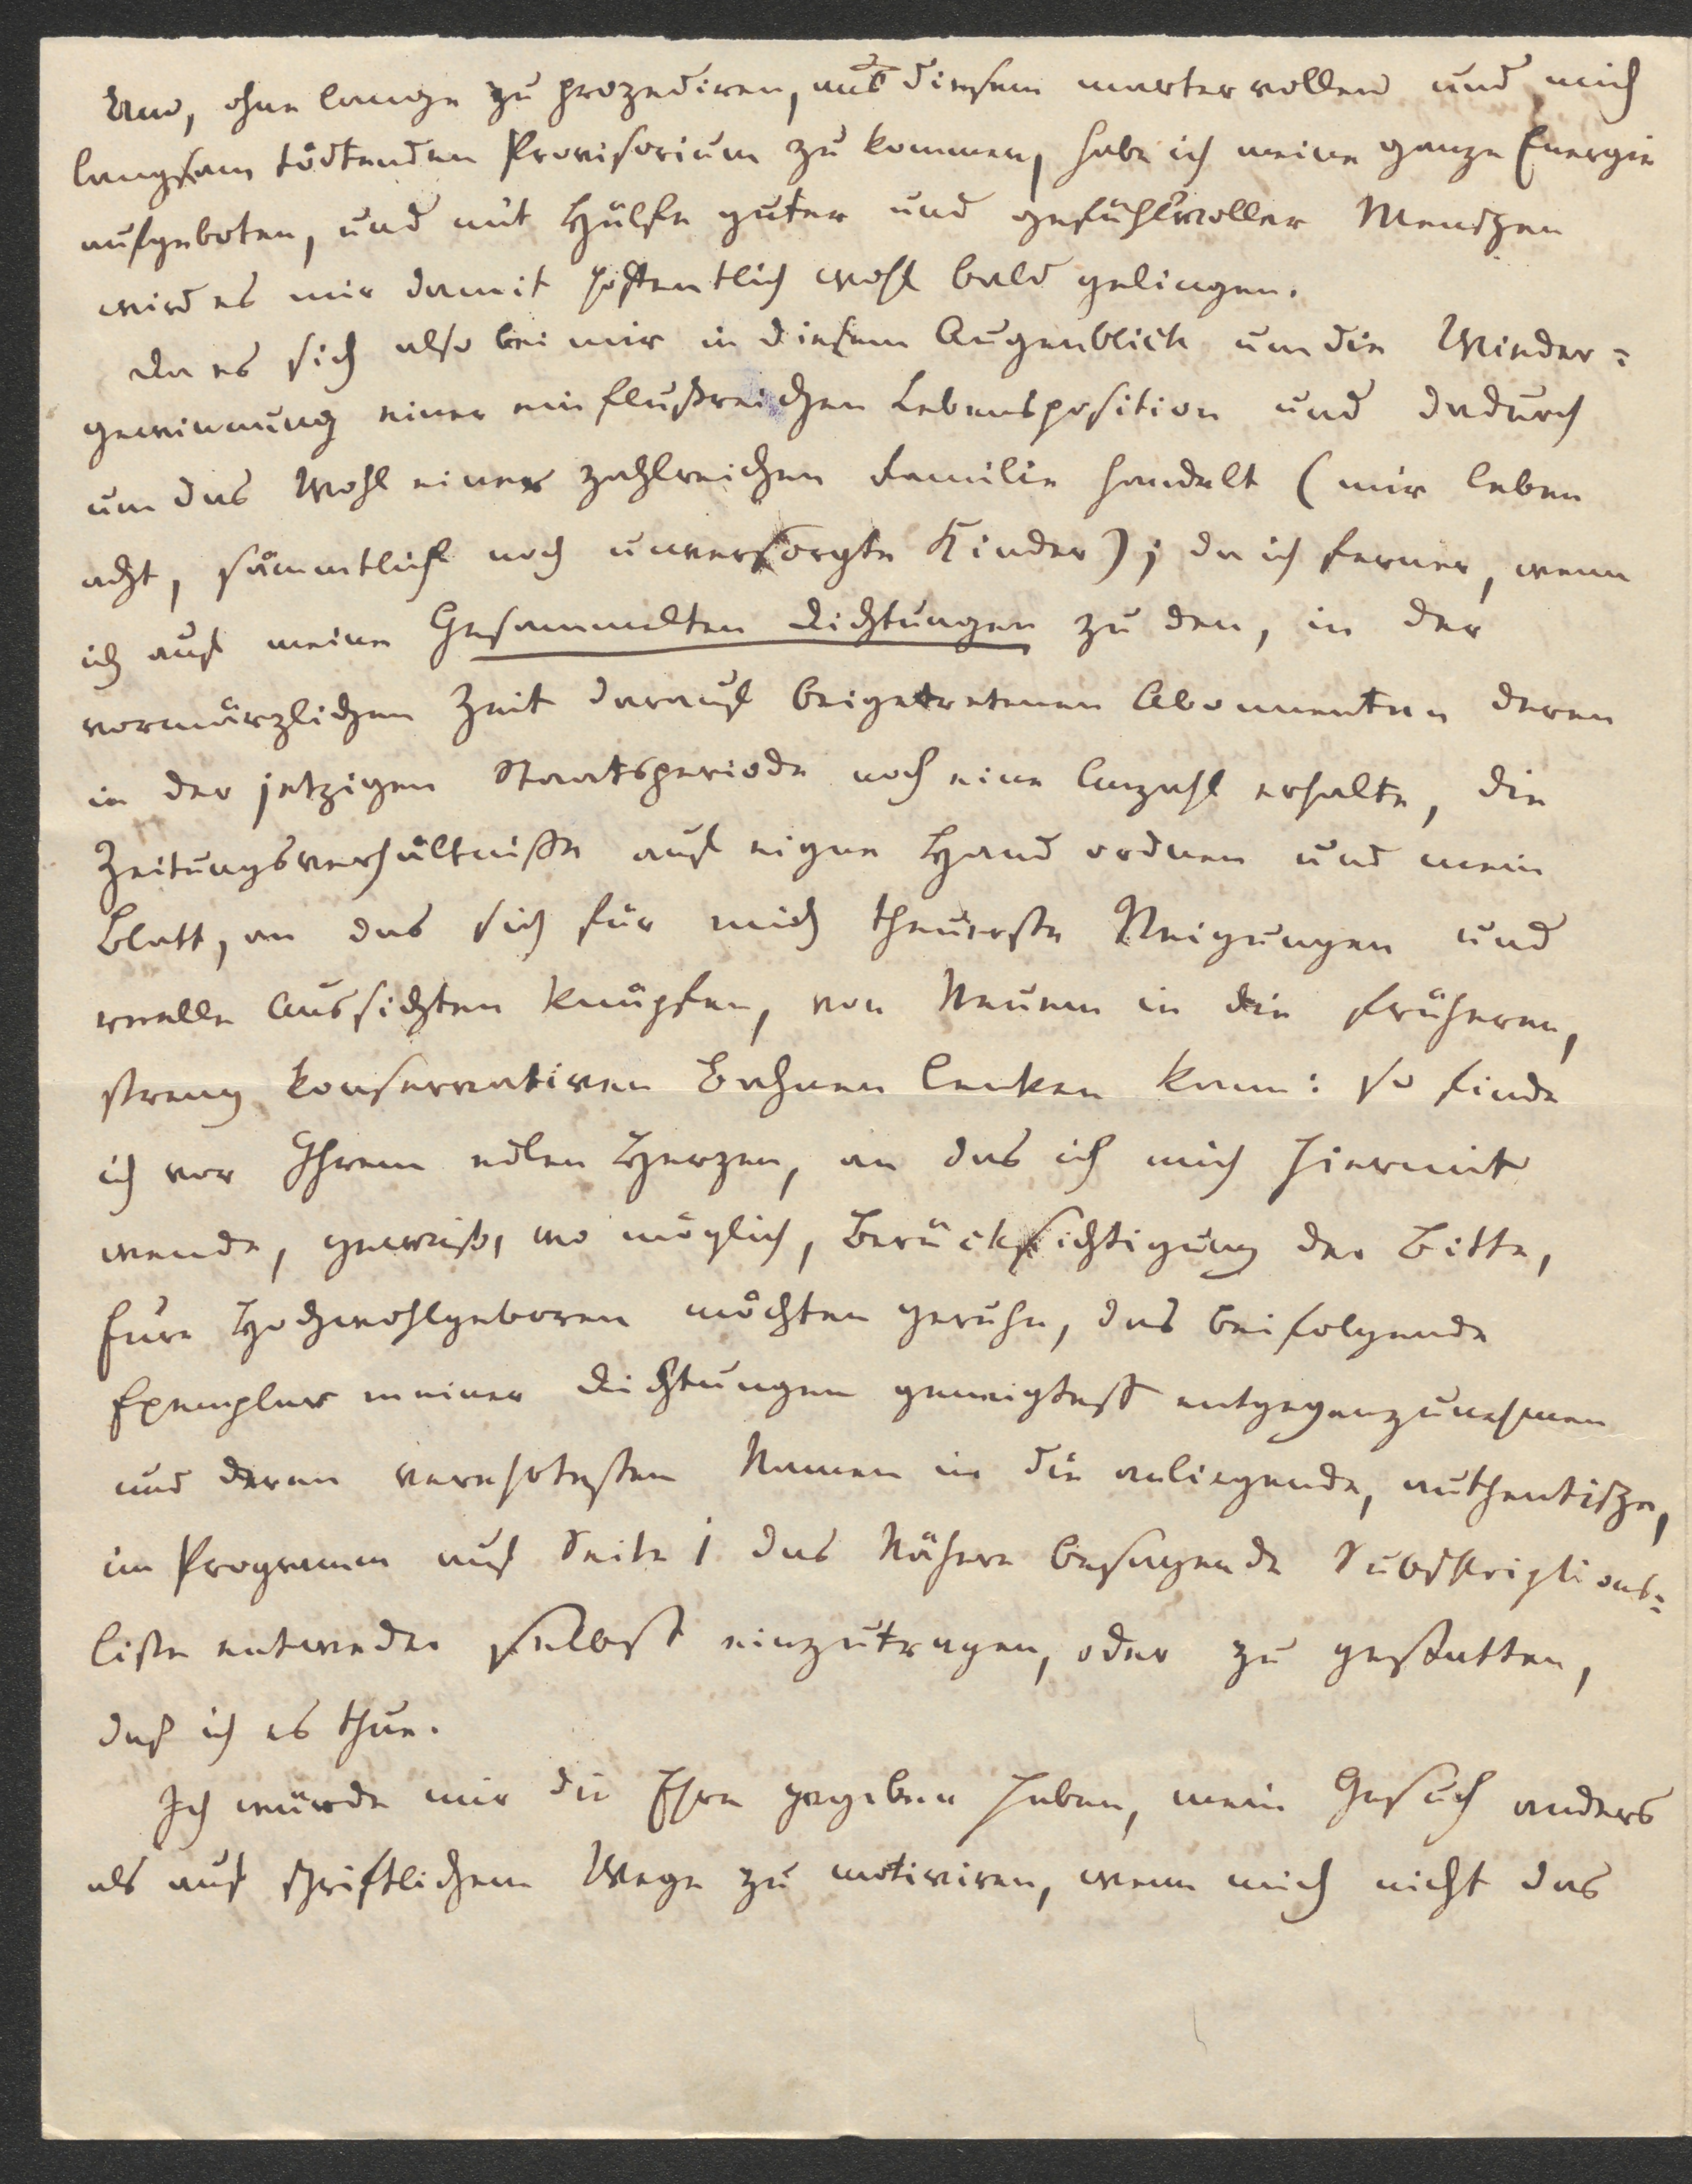 Um, ohne lange zu prozediren, aus diesem martervollen und mich
langsam tödtenden Provisorium zu kommen, habe ich meine ganze Energie
aufgeboten, und mit Hülfe guter und gefühlvoller Menschen
wird es mir damit hoffentlich wohl bald gelingen.
Da es sich also bei mir in diesem Augenblick um die Wieder=
gewinnung einer einflußreichen Lebensposition und dadurch
um das Wohl einer zahlreichen Familie handelt (mir leben
acht, sämmtlich noch unversorgte Kinder); da ich ferner, wenn
ich auf meine Gesammelten Dichtungen zu den, in der
vormärzlichen Zeit darauf beigetretenen Abonnenten deren
in der jetzigen Staatsperiode noch eine Anzahl erhalte, die
Zeitungsverhältnisse auf eigne Hand ordnen und mein
Blatt, an das sich für mich theuerste Neigungen und
reelle Aussichten knüpfen, von Neuem in die früheren,
streng konservativen Bahnen lenken kann: so finde
ich vor Ihrem edlen Herzen, an das ich mich hiermit
wende, gewiß, wo möglich, Berücksichtigung der Bitte,
Eure Hochwohlgeboren möchten geruhn, das beifolgende
Exemplar meiner Dichtungen geneigtest entgegenzunehmen
und deren verehrtesten Namen in die anliegende, authentische,
im Programm auf Seite 1 das Nähere besagende Subskriptions=
liste entweder selbst einzutragen, oder zu gestatten,
daß ich es thue.
Ich würde mir die Ehre gegeben haben, mein Gesuch anders
als auf schriftlichem Wege zu motiviren, wenn mich nicht das